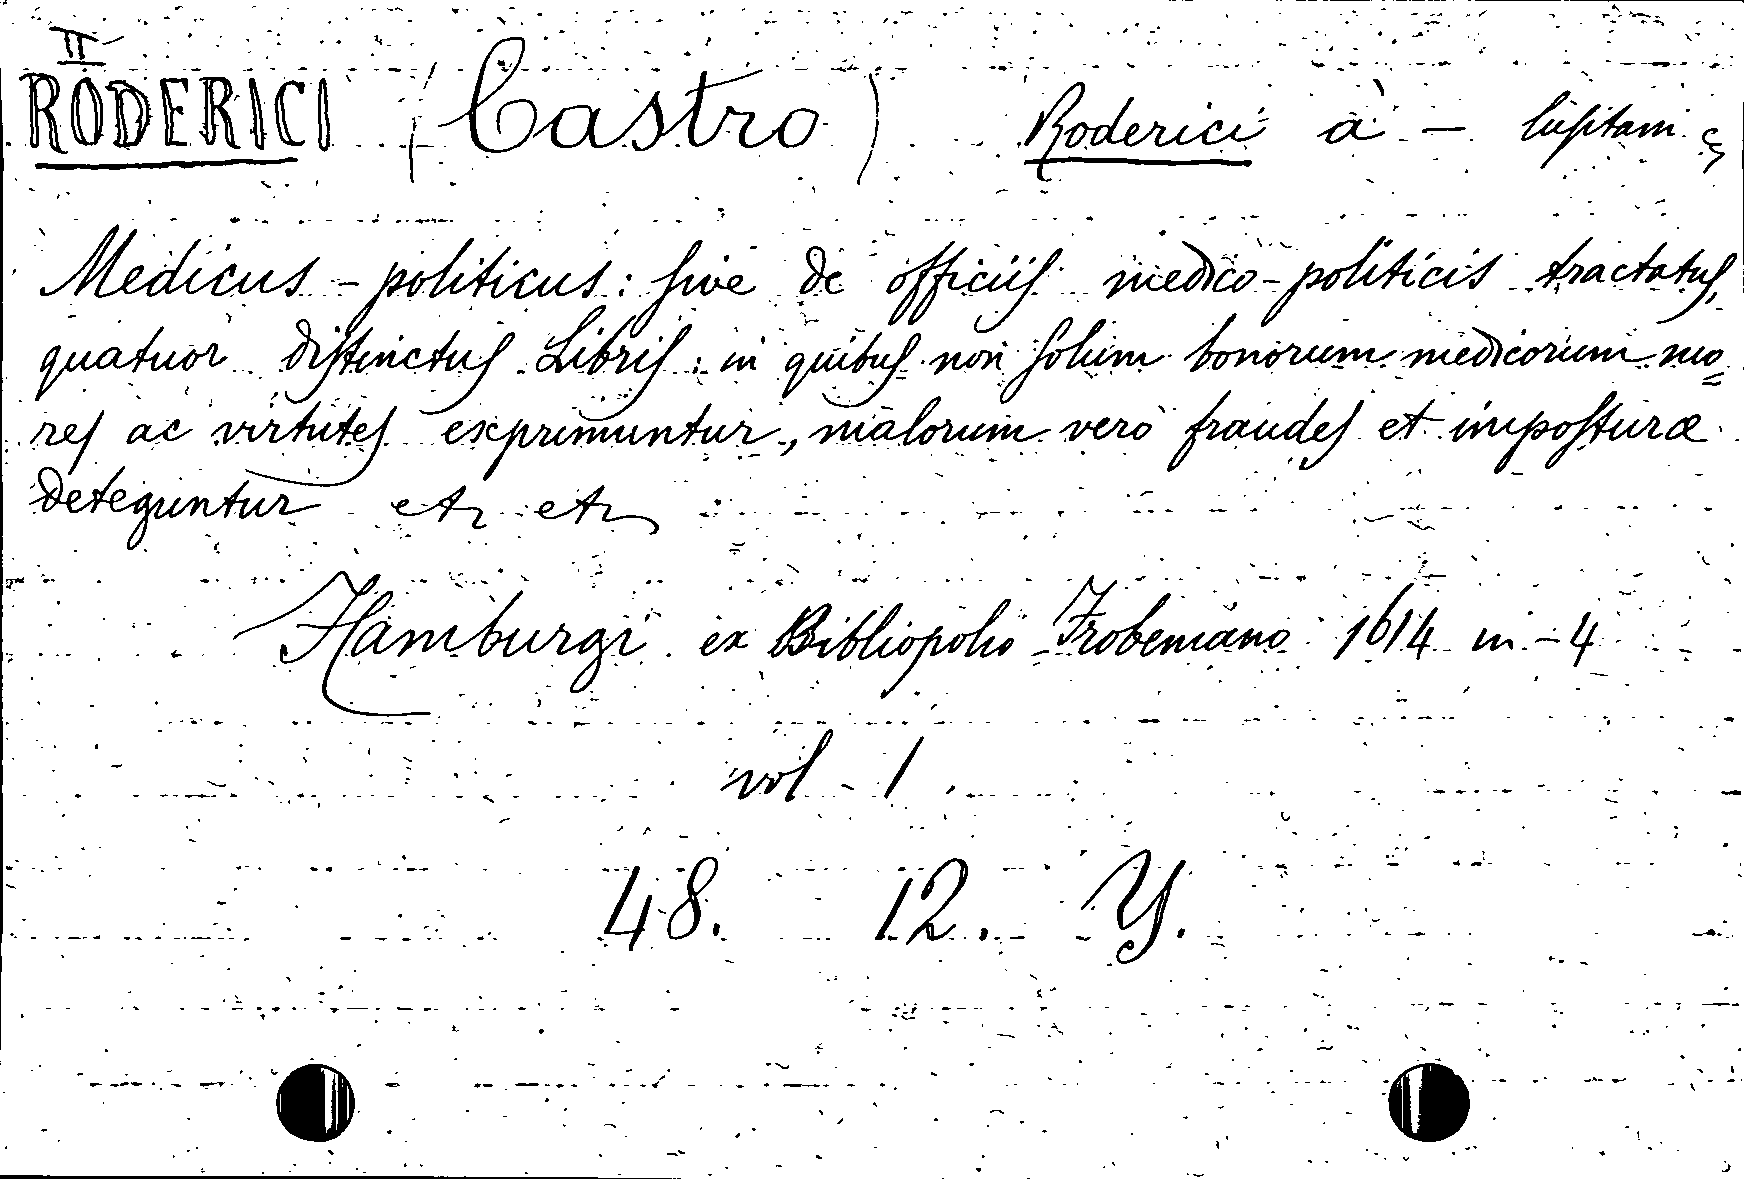 II
RODERICI (Castro) Roderici à — lusitani
Medicus-politicus: sive de officiis medico-politicis tractatus,
quatuor distinctus Libris: in quibus non solum bonorum medicorum mo=
res ac virtutes exprimuntur, malorum verò fraudes et imposturæ
deteguntur etc etc
Hamburgi ex Bibliopolio Frobeniano 1614 in-4
vol - 1
48. 12. Y.